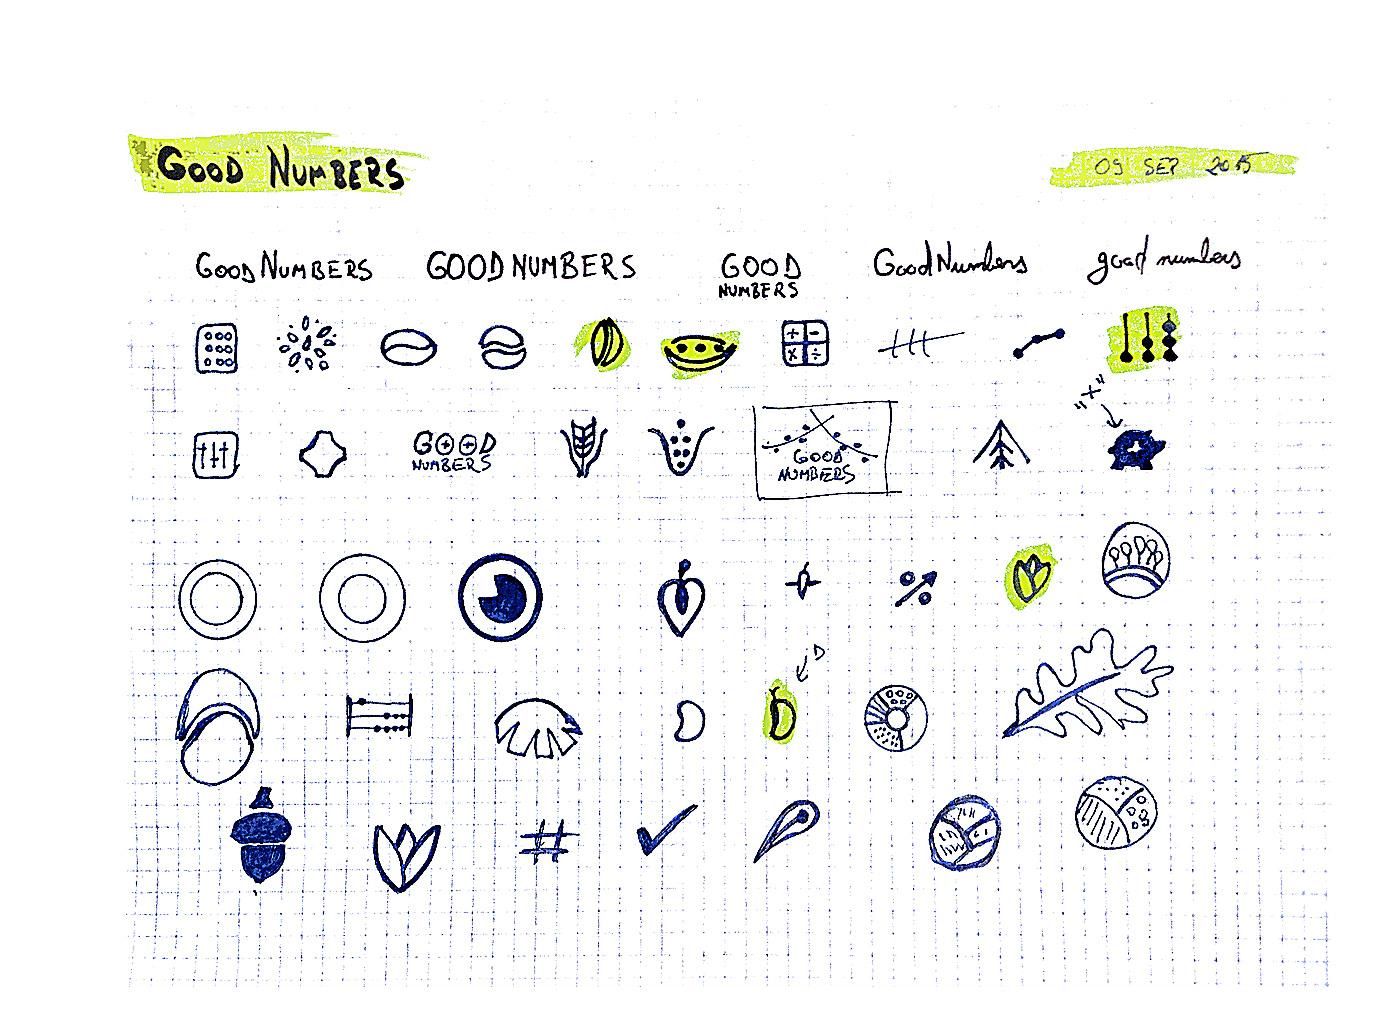 GOOD NUMBERS
09 SEP 2015
GOOD NUMBERS
GOOD NUMBERS
GOOD
NUMBERS
Good Numbers
good numbers
+ -
x ÷
"x"
GOOD
NUMBERS
GOOD
NUMBERS
D
#